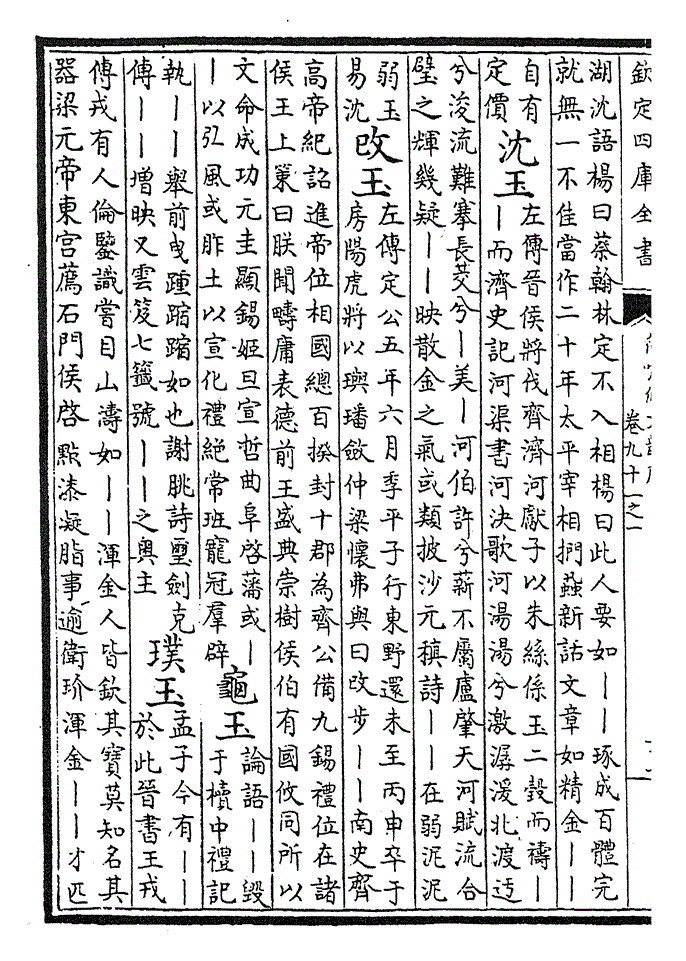 欽定四庫全書
卷九十一之一
湖沈語楊曰蔡翰林定不入相楊曰此人要如||琢成百體完
就無一不佳當作二十年太平宰相捫蝨新話文章如精金||
自有
定價
沈玉
左傳晉侯將伐齊濟河獻子以朱絲係玉二瑴而禱|
|而濟史記河渠書河決歌河湯湯兮激潺湲北渡迃
兮浚流難搴長茭兮|美|河伯許兮薪不屬盧肇天河賦流合
璧之輝幾疑||映散金之氣或類披沙元稹詩||在弱泥泥
弱玉
易沈
改玉
左傳定公五年六月季平子行東野還未至丙申卒于
房陽虎將以璵璠斂仲梁懷弗與曰改步||南史齊
高帝紀詔進帝位相國總百揆封十郡為齊公備九錫禮位在諸
侯王上策曰朕聞疇庸表德前王盛典崇樹侯伯有國攸同所以
文命成功元圭顯錫姬旦宣哲曲阜啓藩或|
|以弘風或胙土以宣化禮絶常班寵冠羣辟
龜玉
論語||毀
于櫝中禮記
執||舉前曳踵蹜蹜如也謝朓詩璽劍克
傳||增映又雲笈七籤號||之奥主
璞玉
孟子今有||
於此晉書王戎
傳戎有人倫鑒識嘗目山濤如||渾金人皆欽其寶莫知名其
器梁元帝東宫薦石門侯啓點漆凝脂事逾衛玠渾金||才匹